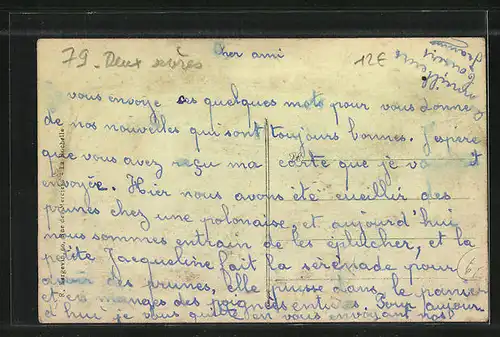 79 - Deux sèvres
Cher ami
12€
meilleurs
vous envoye ces quelques mots pour vous donnez
de nos nouvelles qui sont toujours bonnes. J'espère
que vous avez reçu ma carte que je vous et
envoyée. Hier nous avons été cueillir des
prunes chez une polonaise, et aujourd'hui
nous sommes entrain de les éplucher, et la
petite Jacqueline fait la sérénade pour
avoir des prunes, elle puise dans le panier
et en manges des poignées entières. Pour aujour
d'hui je vous quitte en vous envoyant nos